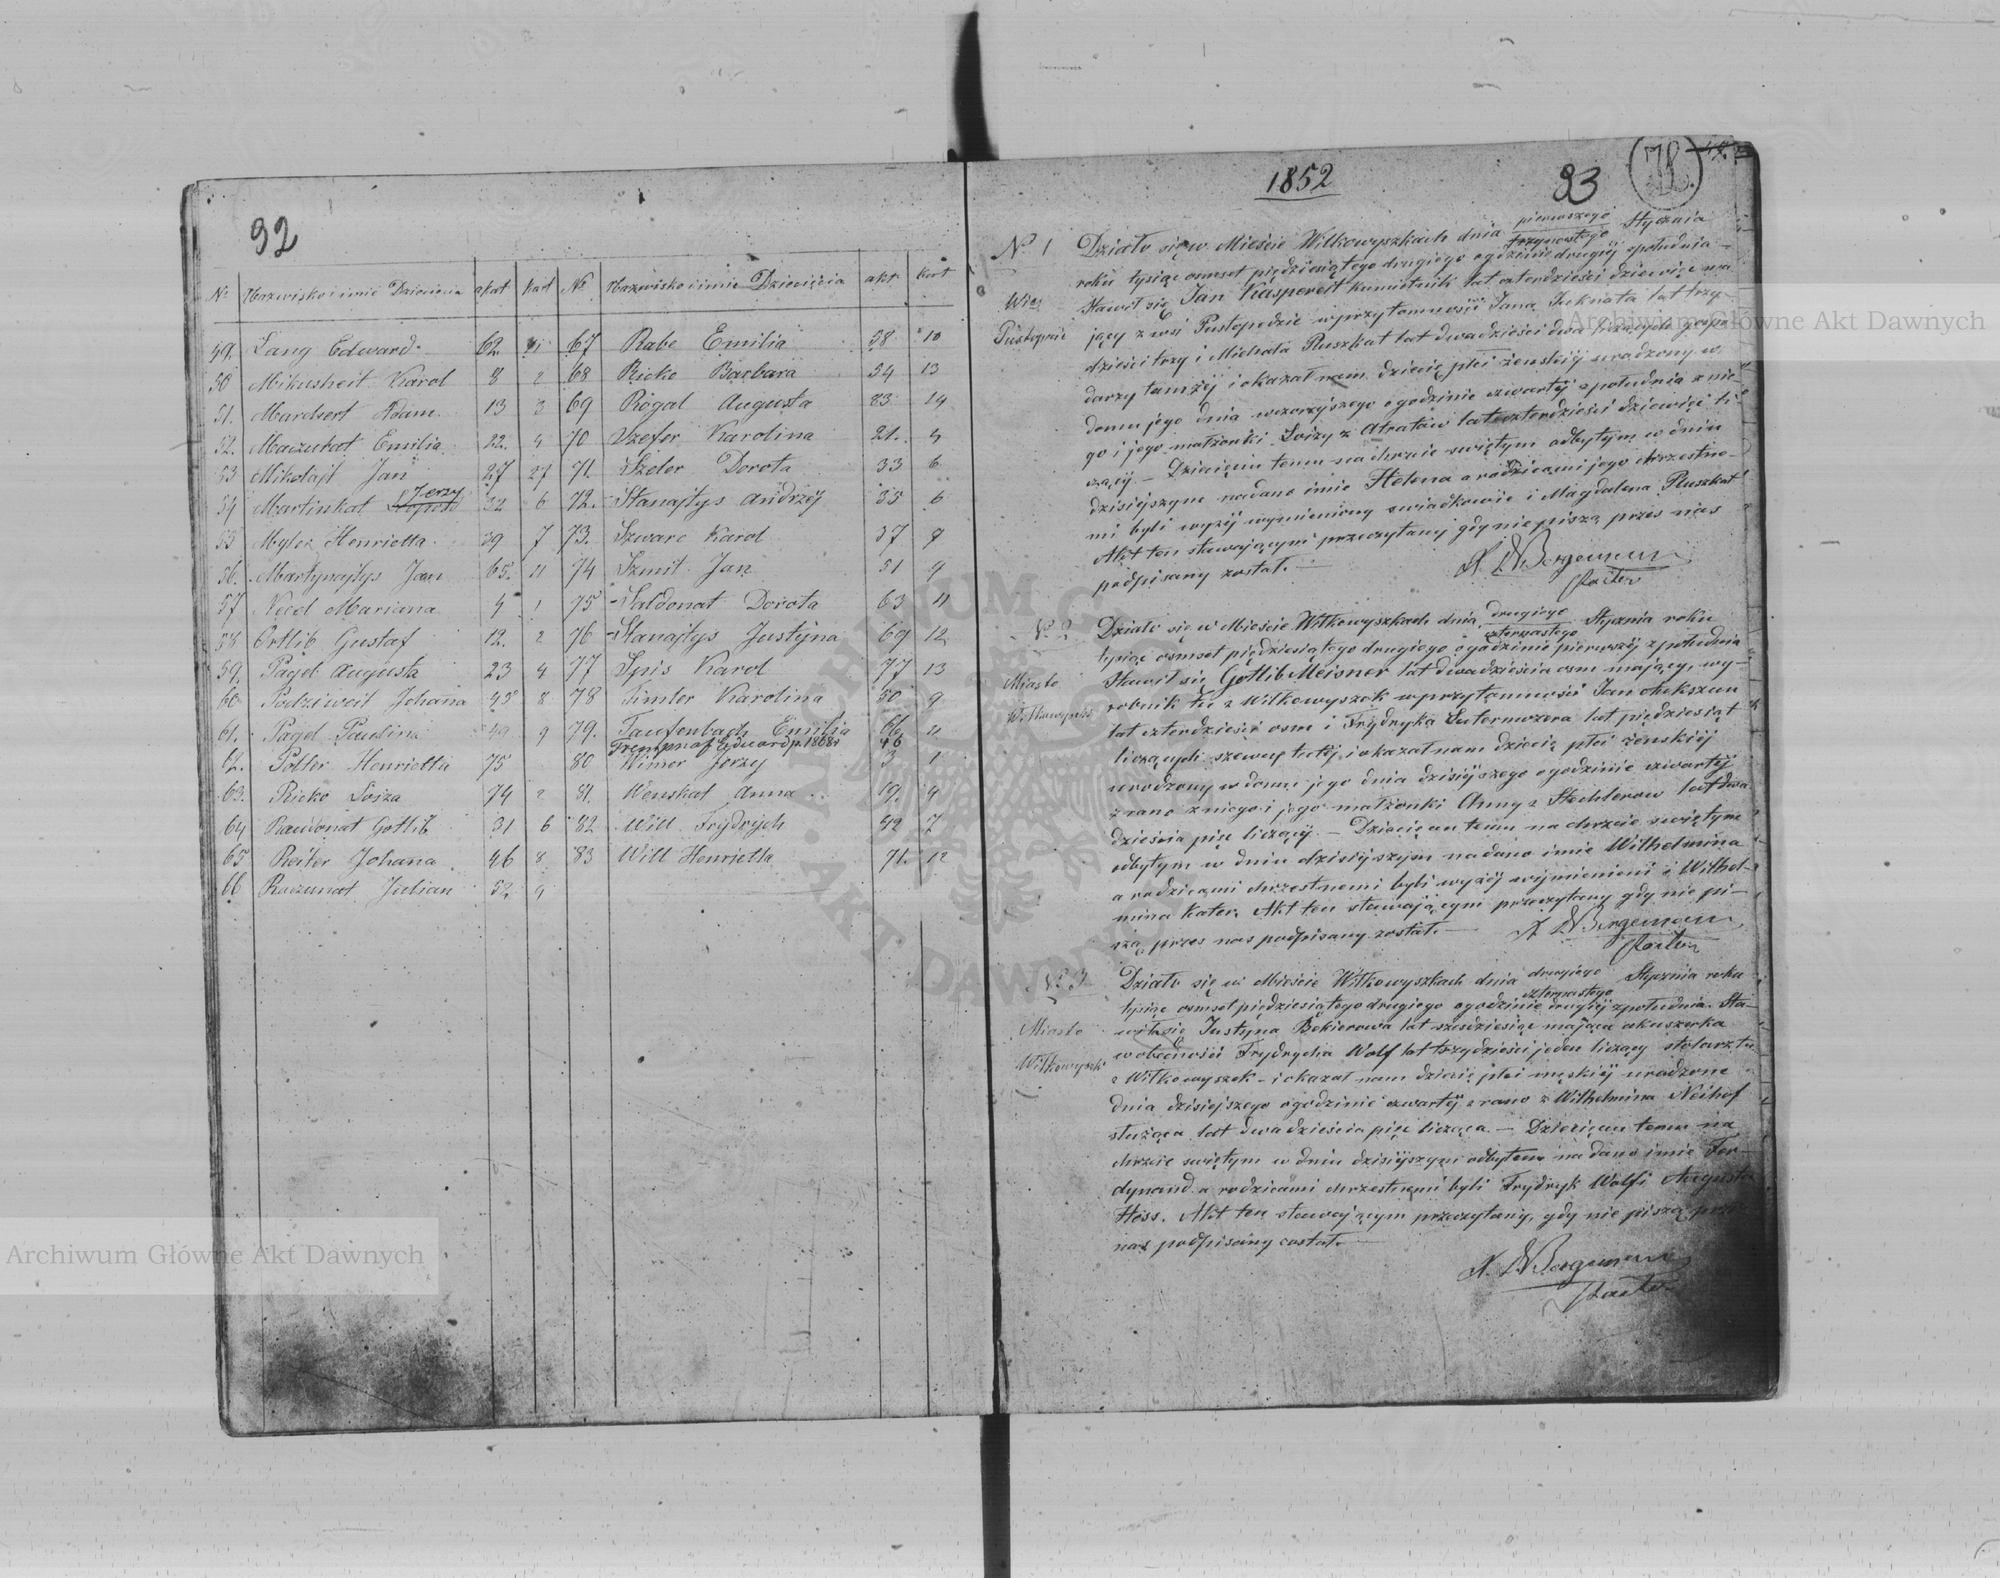 92
№ Nazwisko i imie Dziecięcia akt kart № Nazwisko i imie Dziecięcia akt kart
49. Lang Edward 62 11 67 Rabe Emilia 58 10
50 Mikusheit Karol 8 2 68 Ricko Barbara 54 13
51. Mardsert Adam 13 3 69 Rogal Augusta 83 14
52. Maczulat Emilia 22. 4 70 Szefer Karolina 21. 4
53 Mikolajt Jan 27 27 71. Szeler Dorota 33 6
Jerzy
54 Martinkat 32 6 72. Stanajtys Andrzéj 35 6
55 Myler Henrietta 39 7 73. Szwarc Karol 37 7
56. Martynajtys Jan 65. 11 74 Szmit Jan 51 9
57 Necel Marianna 4 1 75 Saldonat Dorota 63 11
58 Ortlib Gustaf 12. 2 76 Stanajtys Justyna 69 12
59. Pagel Augusta 23 4 77 Synis Karol 77 13
60 Podziweit Johana 43 8 78 Timler Karolina 50 9
61. Pagel Paulina 49 9 79. Taufenbach Emilia 66 11
Eduard p. 1868r 46
62. Potter Henrietta 75 80 Wimer Jerzy 3 1
63. Ricko Loiza 74 2 81. Wenskat Anna 19. 4
64 Raudonat Gotlib 31 6 82 Will Frydrych 42 7
65 Reiter Johana 46 8 83 Will Henrietta 71. 12
66 Raczunat Julian 52 9
1852
93
№ 1
Wieś
pierwszego
Działo się w Mieście Wiłkowyszkach dnia trzynastego Stycznia
roku tysiąc osmset piędziesiątego drugiego o godzinie drugiéj z południa
Stawił się Jan Kaspereit kumietnik lat czterdzieści dziewięć ma
jący z wsi Pustopedzie w przytomności Jana Jucknata lat trzy-
dzieści trzy i Michała Pluszkat lat dwadzieści dwa liczących gospo
darzy tamżéj i okazał nam dziecię płci żenskiéj urodzony w
domu jego dnia wczorajszego o godzinie czwartéj z południa z nie
go i jego małżonki Loizy z Atratów lat czterdzieści dziewięć li
czącéj. — Dziecięciu temu na chrzcie swiętym odbytym w dniu
dzisiéjszym nadano imie Helena a rodzicami jego chrzestne-
mi byli wyzéj wymieniony swiadkowie i Magdalena Pluszkat
Akt ten stawającymi przeczytany gdy nie piszą przes nas
podpisany został. —
X. W Bergemann
Pastor
№ 2
Miasto
Wiłkowyszki
drugiego
Działo się w Mieście Wiłkowyszkach dnia czternastego Stycznia roku
tysiąc osmset pięćdziesiątego drugiego o godzinie pierwszéj z południa
Stawił się Gotlib Meisner lat dwadzieścia osm mający, wy-
robnik tu z Wiłkowyszek w przytomności Jan
lat czterdzieści osm i Frydryka Lutermozera lat pięćdziesiąt
liczących szewcy tutéj i okazał nam dziecię płci żenskiéj
urodzony w domu jego dnia dzisiéjszego o godzinie czwartéj
z rano z niego i jego małżonki Anny z Stechlerow lat dwa
dzieścia pięć liczącéj. — Dziecięciu temu na chrzcie swiętym
odbytym w dniu dzisiéjszym nadano imie Wilhelmina
a rodzicami chrzestnemi byli wyzéj wijmienieni i Wilhel-
mina Kater. Akt ten stawającymi przeczytany gdy nie pi-
szą przes nas podpisany został. —
X W Bergemann
Pastor
№ 3
Miasto
Wiłkowyszk
drugiego
Działo się w Mieście Wiłkowyszkach dnia czternastego Stycznia roku
tysiąc osmset pięćdziesiątego drugiego o godzinie drugiéj z południa. Sta
wiła się Justyna Bekierowa lat szesdziesiąc mająca akuszerka
w obecności Frydrycha Wolf lat trzydzieści jeden liczący stolarz tu
z Wiłkowyszek i okazał nam dziecię płci męskiéj urodzone
dnia dzisiejszego o godzinie czwartéj z rano z Wilhelmina Neihof
służąca lat dwadzieścia pięć licząca. — Dziecięciu temu na
chrzcie swiętym w dniu dzisiéjszym odbytem nadano imie Fer-
dynand a rodzicami chrzestnymi byli Frydryk Wolf i Augusta
Höss. Akt ten stawającym przeczytany, gdy nie piszą przes
nas podpisany został.
X. W Bergemann
Pastor
Archiwum Główne Akt Dawnych
Archiwum Główne Akt Dawnych
ARCHIWUM GŁÓWNE AKT DAWNYCH